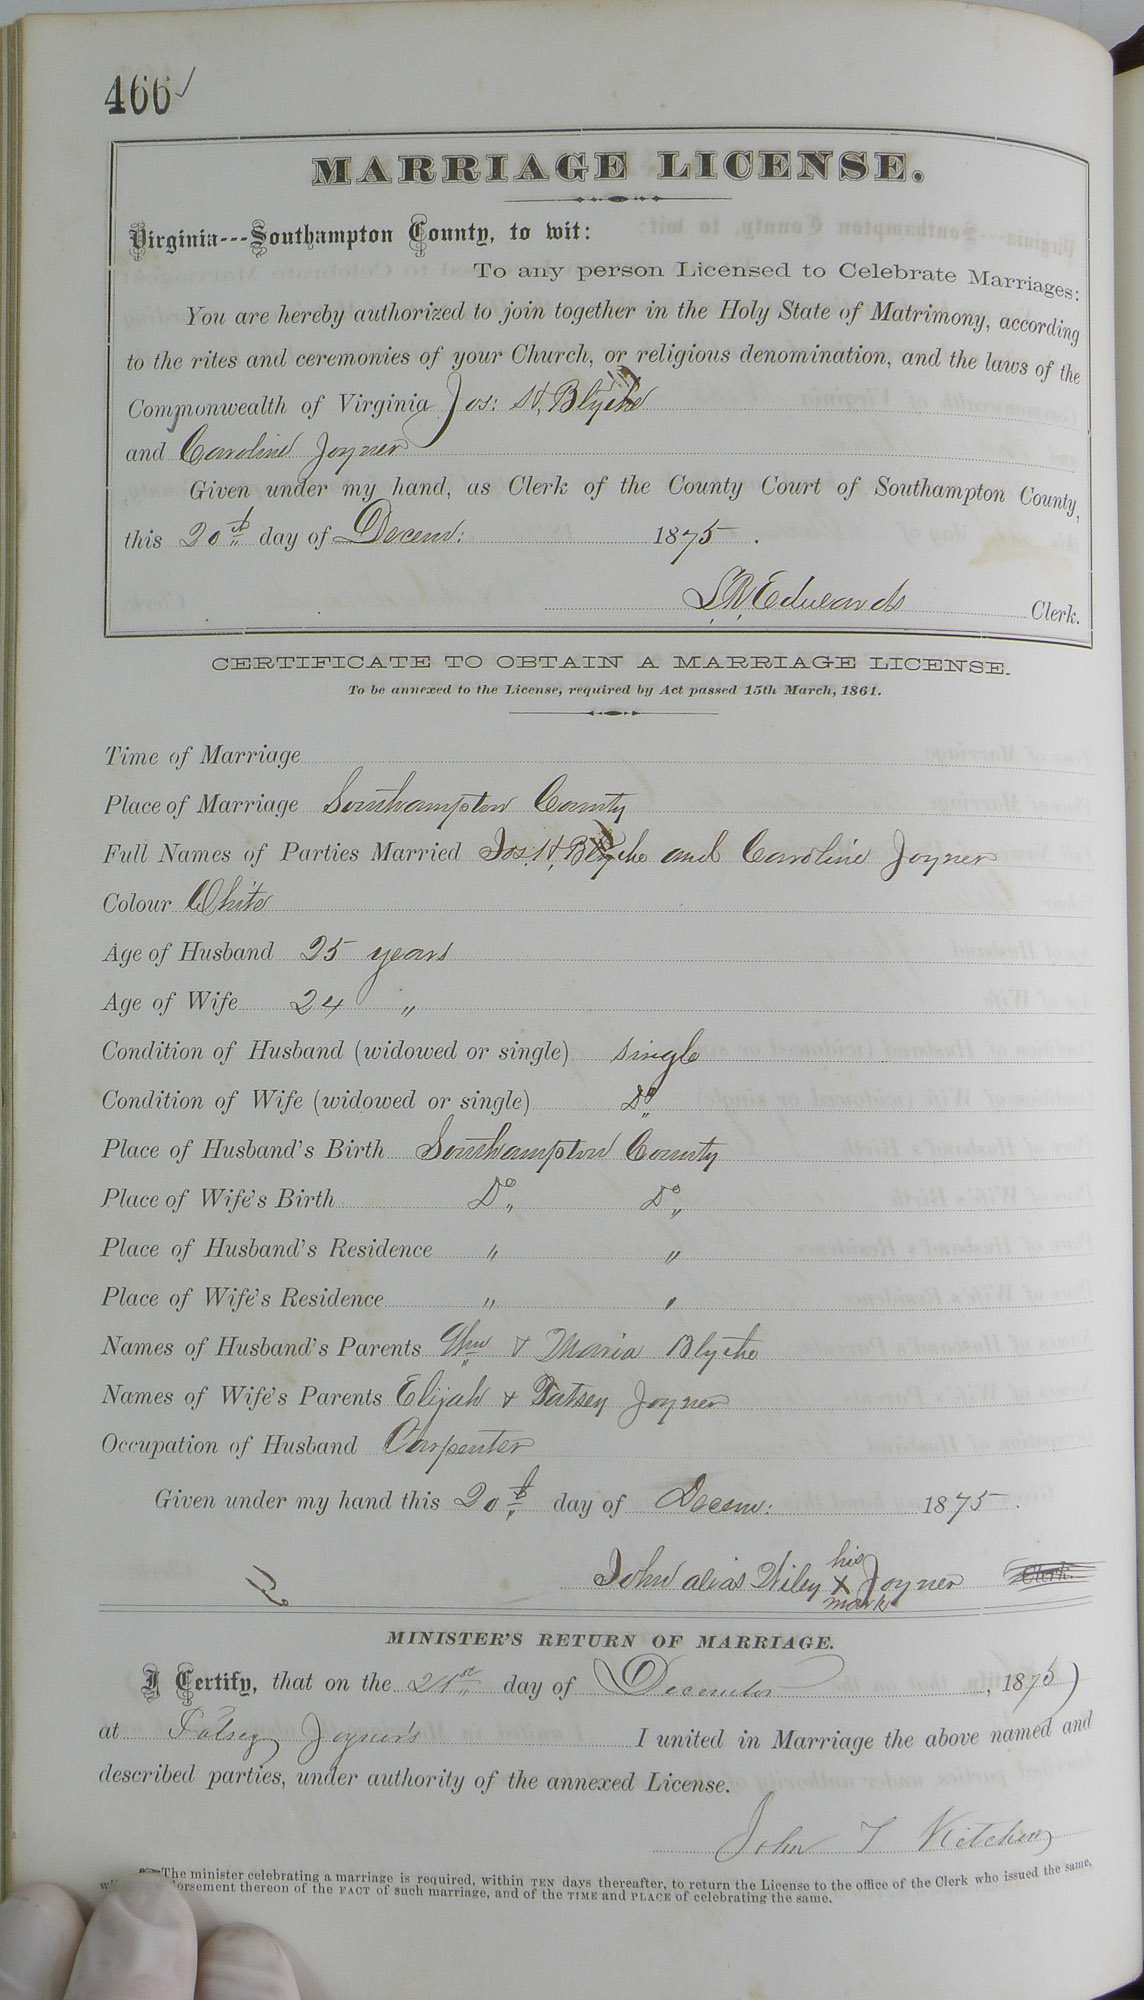 466 ✓
MARRIAGE LICENSE.
Virginia---Southampton County, to wit:
To any person Licensed to Celebrate Marriages:
You are hereby authorized to join together in the Holy State of Matrimony, according
to the rites and ceremonies of your Church, or religious denomination, and the laws of the
Commonwealth of Virginia Jos: H. Blythe
and Caroline Joyner
Given under my hand, as Clerk of the County Court of Southampton County,
this 20th day of Decem: 1875.
L.R. Edwards Clerk.
CERTIFICATE TO OBTAIN A MARRIAGE LICENSE.
To be annexed to the License, required by Act passed 15th March, 1861.
Time of Marriage
Place of Marriage Southampton County
Full Names of Parties Married Jos. H. Blythe and Caroline Joyner
Colour White
Age of Husband 25 years
Age of Wife 24 "
Condition of Husband (widowed or single) single
Condition of Wife (widowed or single) Do
Place of Husband's Birth Southampton County
Place of Wife's Birth Do Do
Place of Husband's Residence " "
Place of Wife's Residence " "
Names of Husband's Parents Wm & Maria Blythe
Names of Wife's Parents Elijah & Patsey Joyner
Occupation of Husband Carpenter
Given under my hand this 20th day of Decem: 1875.
his
John alias Wiley X Joyner Clerk.
mark
MINISTER'S RETURN OF MARRIAGE.
I Certify, that on the 21st day of December, 1875
at Patsey Joyner's I united in Marriage the above named and
described parties, under authority of the annexed License.
John T Kitchen
The minister celebrating a marriage is required, within TEN days thereafter, to return the License to the office of the Clerk who issued the same,
thereon of the FACT of such marriage, and of the TIME and PLACE of celebrating the same.